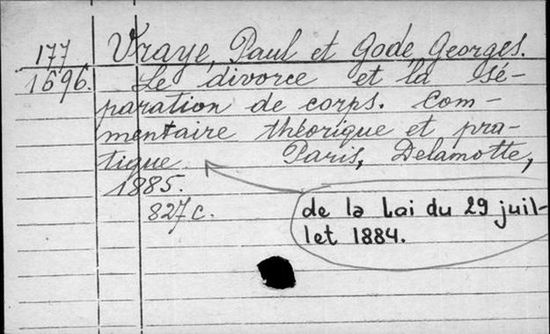 177
1696.
Vraye, Paul et Gode, Georges.
Le divorce et la sé-
paration de corps. Com-
mentaire théorique et pra-
tique Paris, Delamotte,
1885.
827 c.
de la Loi du 29 juil-
let 1884.